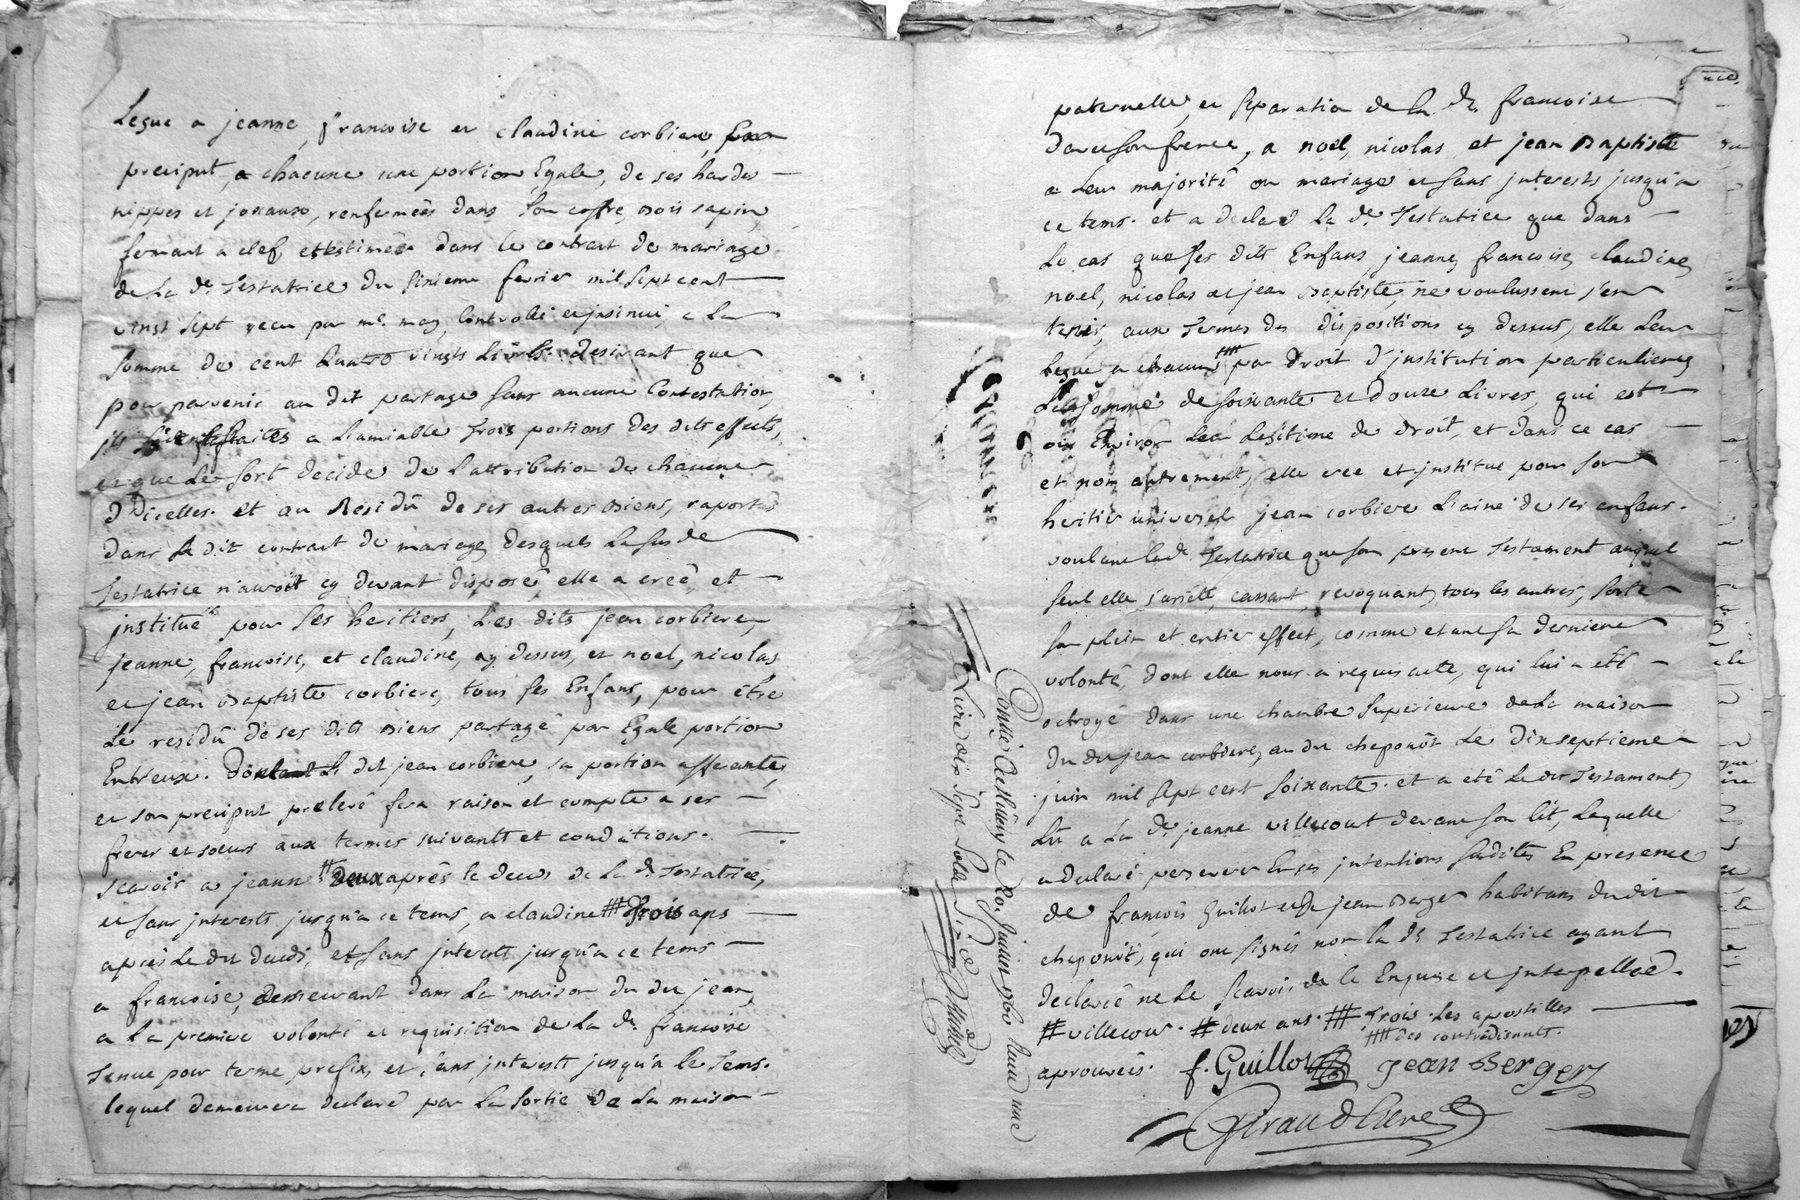 Legue a jeanne, francoise et claudine corbiere, par
preciput, a chacune une portion Egale, de ses hardes
nippes et joxaux, renfermées dans son coffre, bois sapin,
fermant a clef, et estimées dans le contract de mariage
de la de. Testatrice du sixieme fevrier mil sept cent
vingt sept recu par me. may, Controllé et jnsinué, a la
somme de cent quatre vingts Livres. desirant que
pour parvenir au dit partage sans aucune Contestation,
jls soient faites a L'amiable trois portions des dits effects,
et que Le sort decide de L'attribution de chacune
d'icelles. et au Residû de ses autres biens, raportés
dans le dit contract de mariage, desquels La susde.
Testatrice n'auroit cy devant disposé, elle a creé, et
jnstitué pour ses heritiers, Les dits jean corbiere,
jeanne, francoise, et claudine, cy dessus, et noel, nicolas
et jean Baptiste corbiere, tous ses Enfans, pour être
Le residû de ses dits biens partagé par Egale portion
Entr'eux. dont Le dit jean corbiere, sa portion afferante,
et son preciput prelevé fera raison et compte a ses
freres et soeurs aux termes suivants et conditions.
Scavoir a jeanne # deux après le deces de La de. Testatrice,
et sans interests jusqu'a ce tems, a claudine ## trois aps
après Le dit decés, et sans interests jusqu'a ce tems
a francoise, demeurant dans La maison du dit jean,
a La premiere volonté et requisition de La de. francoise
tenue pour terme prefix, et sans jnterests jusqu'a ce tems.
lequel demeurera declaré par La sortie de La maison
paternelle, et separation de La de. francoise
d'avec son frere, a noel, nicolas et jean Baptiste
a Leur majorité ou mariage et sans jnterests jusqu'a
ce tems. et a declaré La de. Testatrice que dans
Le cas que ses dits Enfans, jeanne, francoise, claudine,
noel, nicolas et jean Baptiste, ne voulussent s'en
tenir, aux termes des dispositions cy dessus, elle Leur
legue a chacun #### par droit d'institution particuliere,
La somme de soixante et douze Livres, qui est
ou Environ Leur Legitime de droit, et dans ce cas
et non autrement, elle cree et jnstitue pour son
heritier universel jean corbiere L'ainé de ses enfans.
voulant lade. Testatrice que son present Testament auquel
seul elle s'arrette, cassant, revoquant, tous les autres, sorte
son plein et entier effect, comme etant sa derniere
volonté, dont elle nous a requis acte, qui lui a eté
octroyé dans une chambre superieure de La maison
du dit jean corbiere, au dit cheponôt Le dixseptieme
juin mil sept cent soixante. et a eté Le dit Testament,
Lû a La de. jeanne villecourt devant son lit, Laquelle
a declaré perseverer En ses jntentions susdites En presence
de françois Guillot et de jean Berger habitans du dit
cheponôt, qui ont signés non la de. Testatrice ayant
declaré ne Le scavoir de ce Enquise et jnterpellée.
# villecour. # deux ans. ### trois. Les apostilles
#### des contredisants.
aprouvées. f. Guillot jean Berger
Giraud
Conllé a le 20. juin 1760 Recu une
Livre dix sept sols six d.